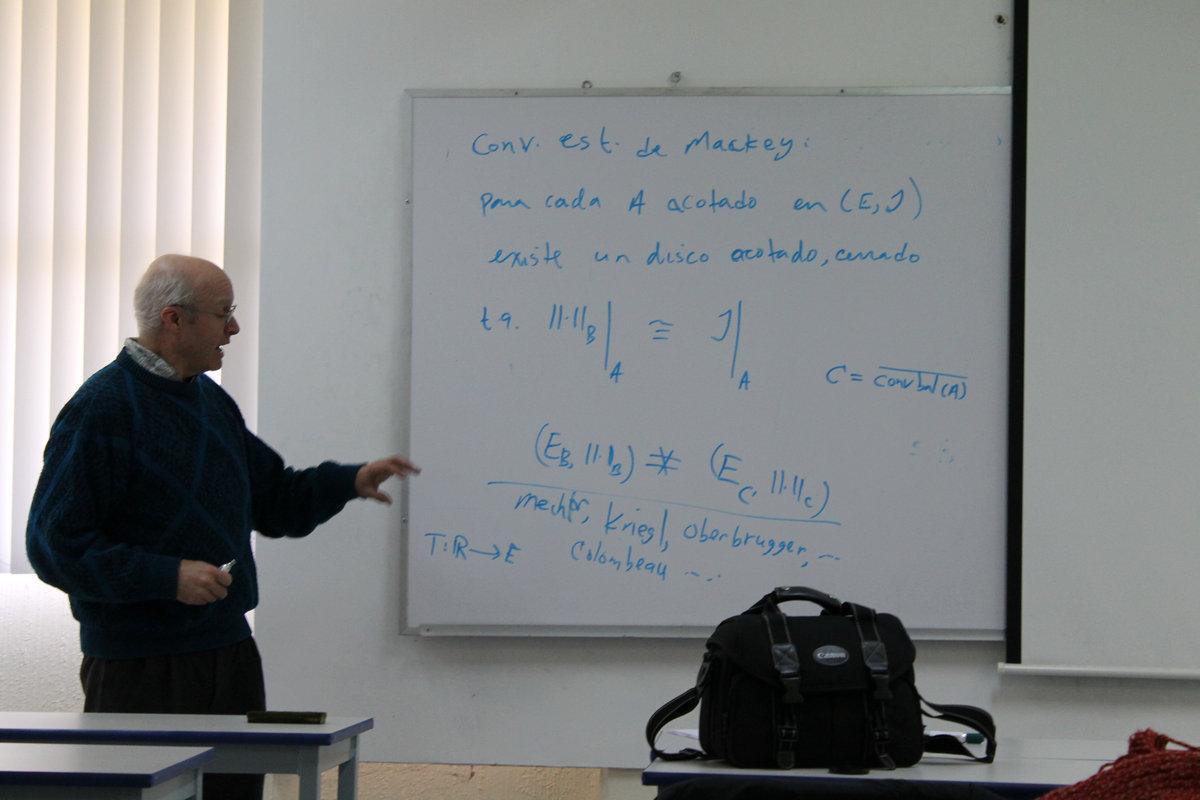 Conv. est. de Mackey:
para cada A acotado en (E, J)
existe un disco acotado, cerrado
t q. ||·||_B |_A ≅ J |_A
C = \overline{conv bal (A)}
(E_B, ||·||_B) ≠ (E_C, ||·||_C)
Kriegl, Oberbrugger, ...
T: ℝ → E
Colombeau ...
Canon